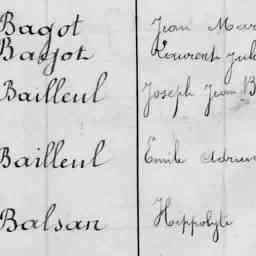 Bagot Jean Mar
Bagot Laurent Jul
Bailleul Joseph Jean B
Bailleul Emile Adrien
Balsan Hippolyte